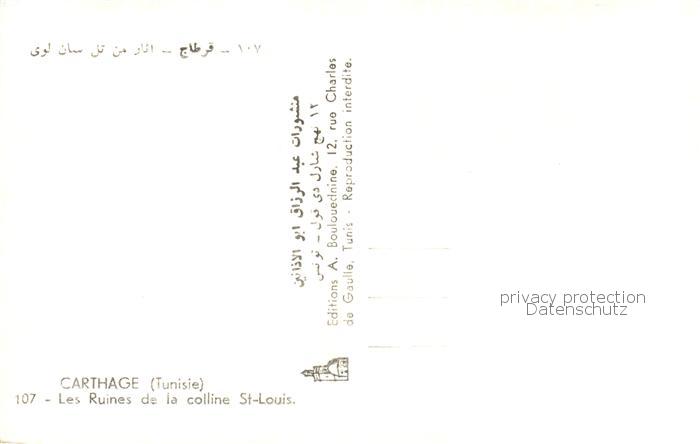 ١٠٧ – قرطاج – اثار من تل سان لوى
منشورات عبد الرزاق ابو الاذانين
١٢ نهج شارل دى قول – تونس
Editions A. Boulouednine, 12, rue Charles
de Gaulle, Tunis - Reproduction interdite.
privacy protection
Datenschutz
CARTHAGE (Tunisie)
107 - Les Ruines de la colline St-Louis.